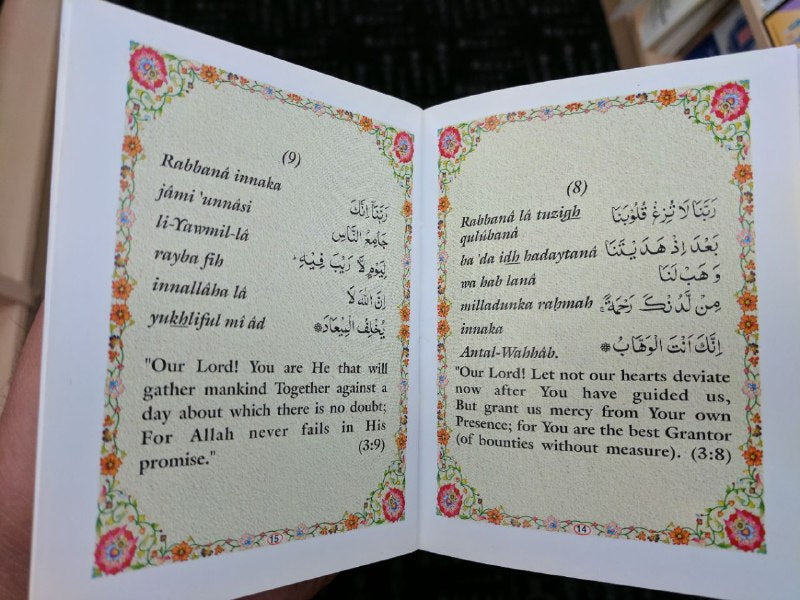 (8)
Rabbaná lá tuzigh
qulúbaná
ba 'da idh hadaytaná
wa hab laná
milladunka raḥmah
innaka
Antal-Wahháb.
رَبَّنَا لَا تُزِغْ قُلُوْبَنَا
بَعْدَ اِذْ هَدَيْتَنَا
وَهَبْ لَنَا
مِنْ لَّدُنْكَ رَحْمَةً ۚ
اِنَّكَ اَنْتَ الْوَهَّابُ ۞
"Our Lord! Let not our hearts deviate
now after You have guided us,
But grant us mercy from Your own
Presence; for You are the best Grantor
(of bounties without measure). (3:8)
14
(9)
Rabbaná innaka
jámi 'unnási
li-Yawmil-lá
rayba fih
innalláha lá
yukhliful mí ád
رَبَّنَآ اِنَّكَ
جَامِعُ النَّاسِ
لِيَوْمٍ لَّا رَيْبَ فِيْهِ ؕ
اِنَّ اللّٰهَ لَا
يُخْلِفُ الْمِيْعَادَ ۞
"Our Lord! You are He that will
gather mankind Together against a
day about which there is no doubt;
For Allah never fails in His
promise." (3:9)
15